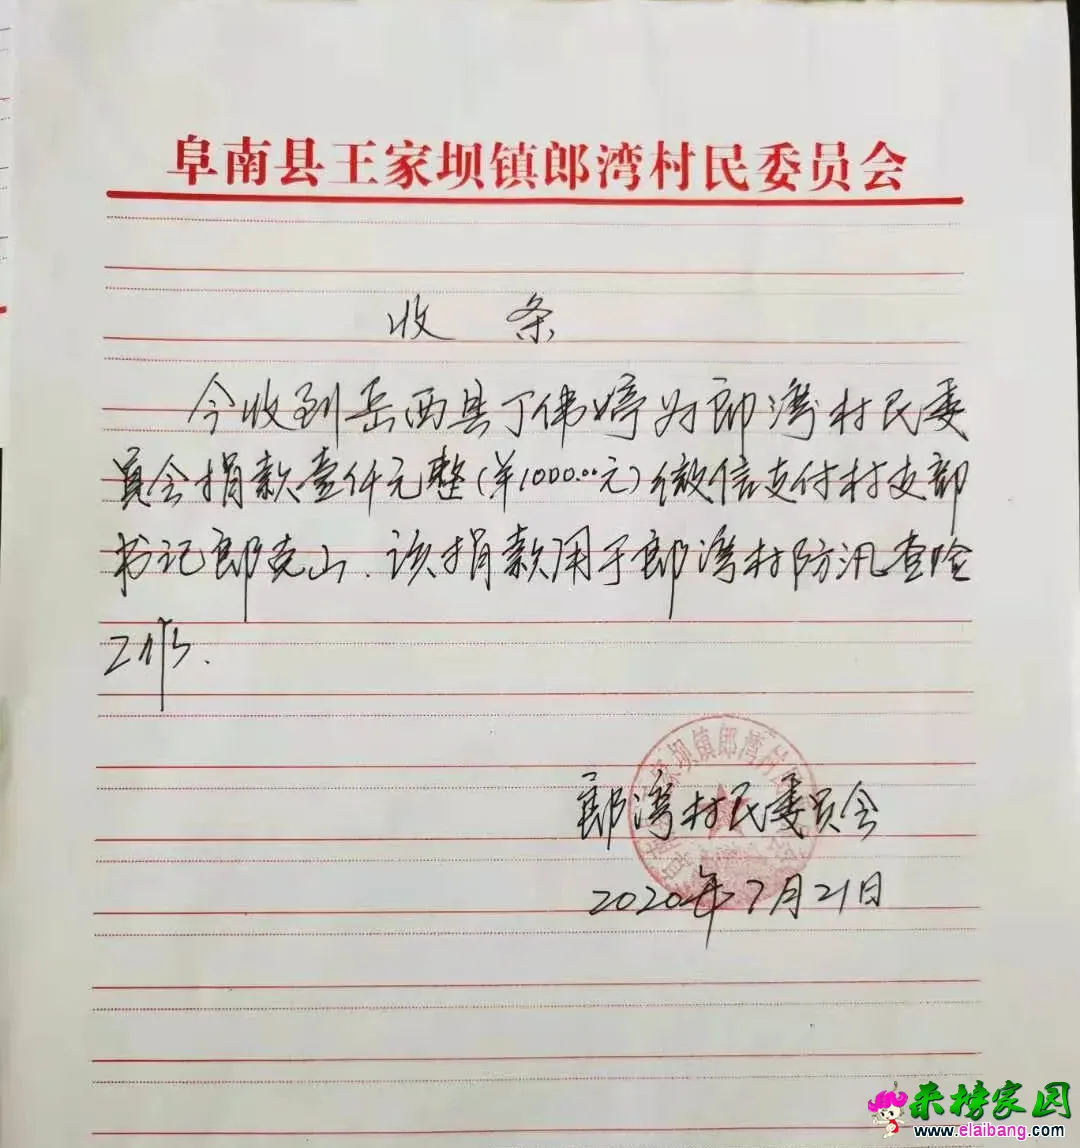 阜南县王家坝镇郎湾村民委员会
收 条
今收到岳西县丁伟婷为郎湾村民委
员会捐款壹仟元整(羊1000.00元)微信支付村支部
书记郎克山、该捐款用于郎湾村防汛查险
工作.
家坝镇郎湾村民
郎湾村民委员会
2020年7月21日
来榜家园
www.elaibang.com